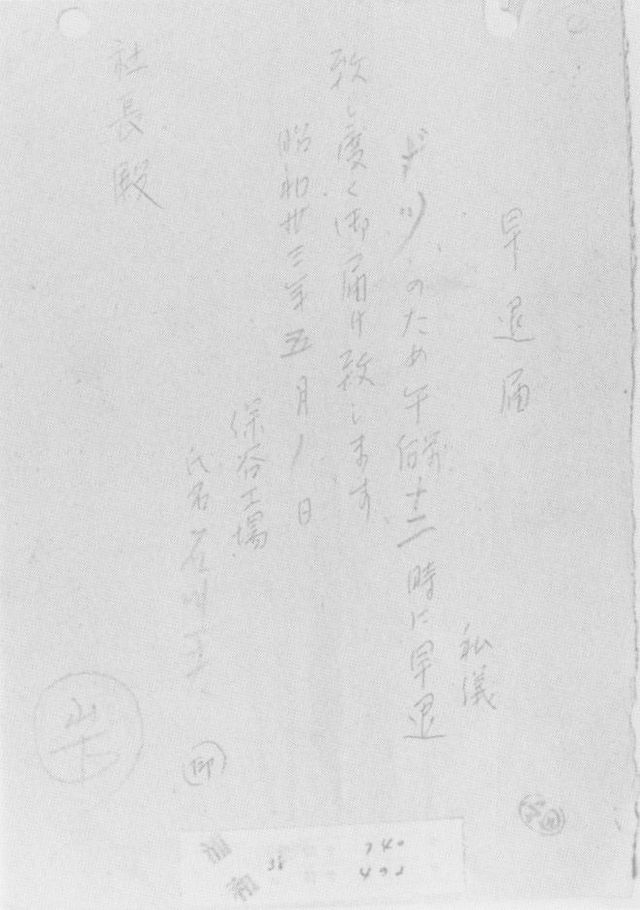 早退届
私儀
のため午前十二時に早退
致し度く御届け致します
昭和卅三年五月1日
保谷工場
氏名
印
社長殿
山下
340